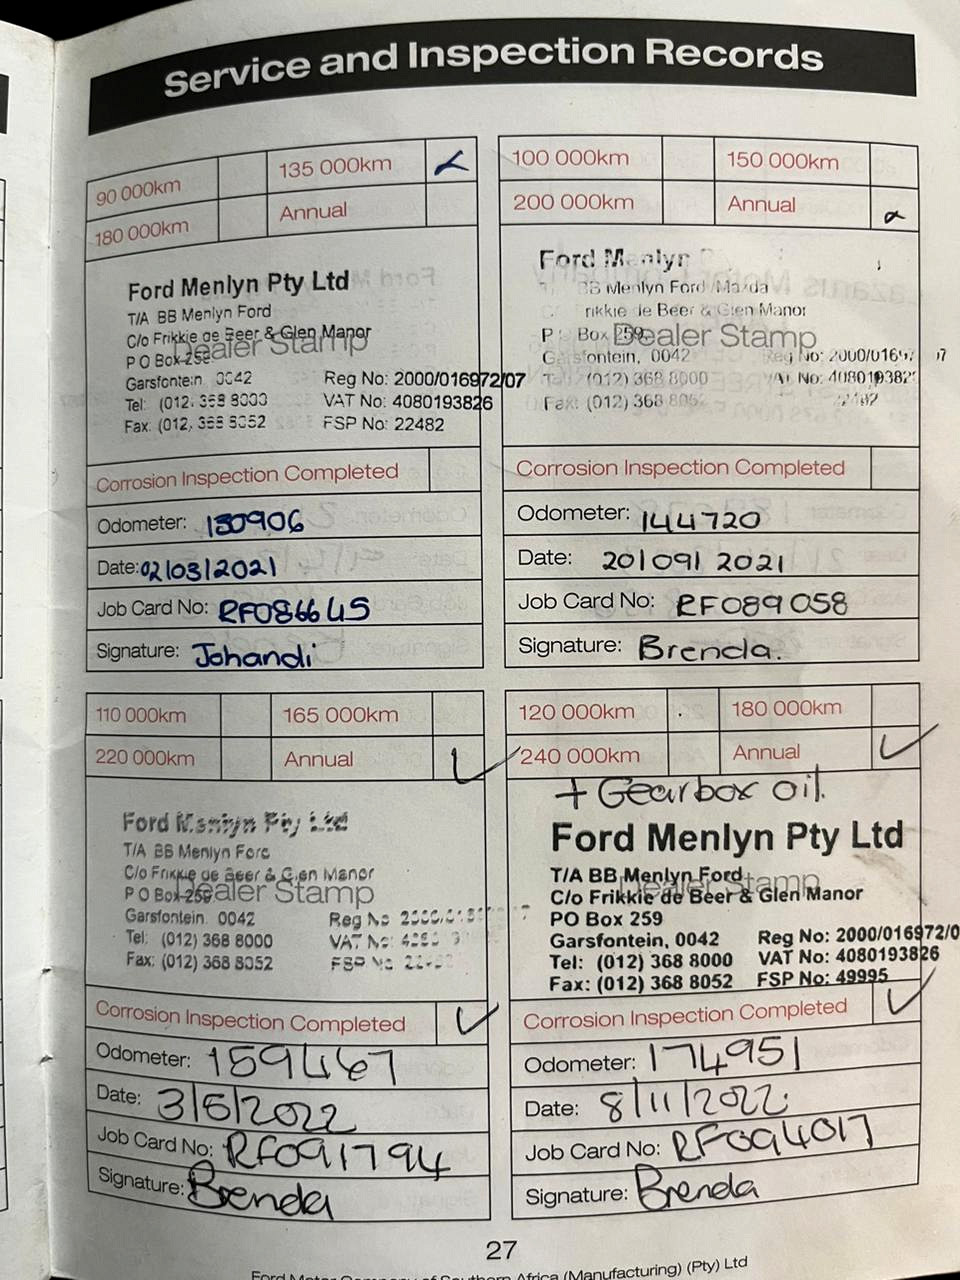 Service and Inspection Records
90 000km 135 000km
180 000km Annual
Ford Menlyn Pty Ltd
T/A BB Menlyn Ford
C/o Frikkie de Beer & Glen Manor
Dealer Stamp
P O Box 259
Garsfontein 0042 Reg No: 2000/016972/07
Tel: (012) 368 8000 VAT No: 4080193826
Fax: (012) 368 8052 FSP No: 22482
Corrosion Inspection Completed
Odometer: 130906
Date: 02/03/2021
Job Card No: RF086645
Signature: Johandi
100 000km 150 000km
200 000km Annual
Ford Menlyn
BB Menlyn Ford/Mazda
rikkie de Beer & Glen Manor
P Box 259
Dealer Stamp
Garsfontein, 0042 Reg No: 2000/01697 07
(012) 368 8000 VAT No: 408019382
Fax: (012) 368 8052 22482
Corrosion Inspection Completed
Odometer: 144720
Date: 20/09/2021
Job Card No: RF089058
Signature: Brenda.
110 000km 165 000km
220 000km Annual
Ford Menlyn Pty Ltd
T/A BB Menlyn Ford
C/o Frikkie de Beer & Glen Manor
P O Box 259
Dealer Stamp
Garsfontein. 0042 Reg No
Tel: (012) 368 8000 VAT No:
Fax: (012) 368 8052 FSP No
Corrosion Inspection Completed
Odometer: 159467
Date: 3/5/2022
Job Card No: RF091794
Signature: Brenda
120 000km 180 000km
240 000km Annual
+ Gearbox oil.
Ford Menlyn Pty Ltd
T/A BB Menlyn Ford
Dealer Stamp
C/o Frikkie de Beer & Glen Manor
PO Box 259
Garsfontein, 0042 Reg No: 2000/016972/0
Tel: (012) 368 8000 VAT No: 4080193826
Fax: (012) 368 8052 FSP No: 49995
Corrosion Inspection Completed
Odometer: 174951
Date: 8/11/2022
Job Card No: RF094017
Signature: Brenda
27
Ford Motor Company of Southern Africa (Manufacturing) (Pty) Ltd